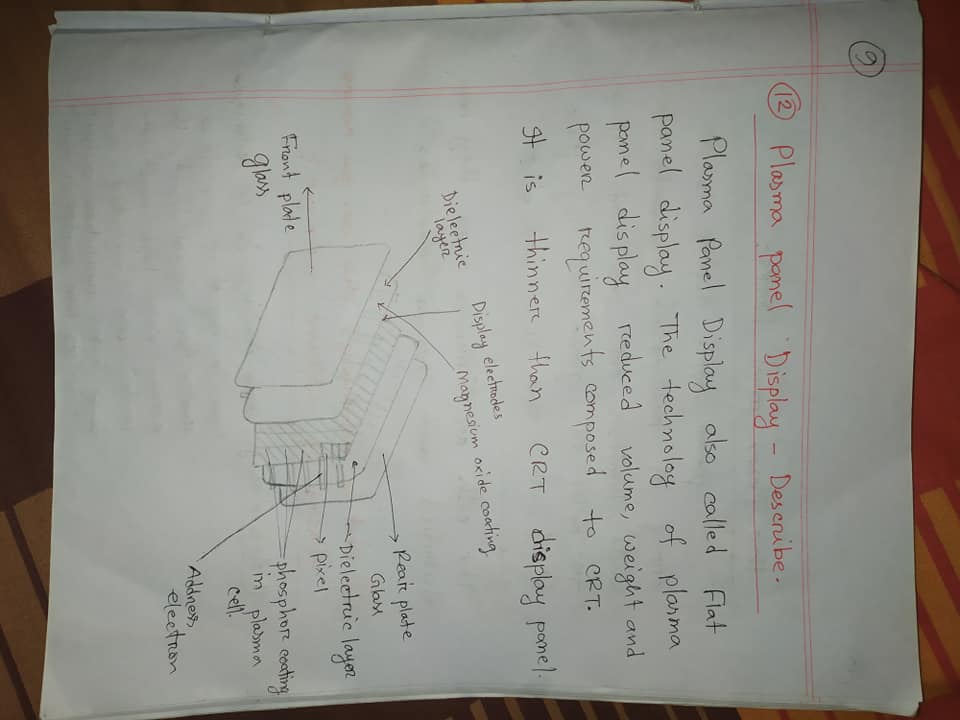 9
12 Plasma panel Display - Describe.
Plasma Panel Display also called Flat
panel display. The technoloy of plasma
panel display reduced volume, weight and
power requirements composed to CRT.
It is thinner than CRT display panel.
Display electrodes
Magnesium oxide coating
Dielectric
layer
Rear plate
Glass
Dielectric layer
pixel
Front plate
glass
phosphor coating
in plasma
cell.
Address
electron